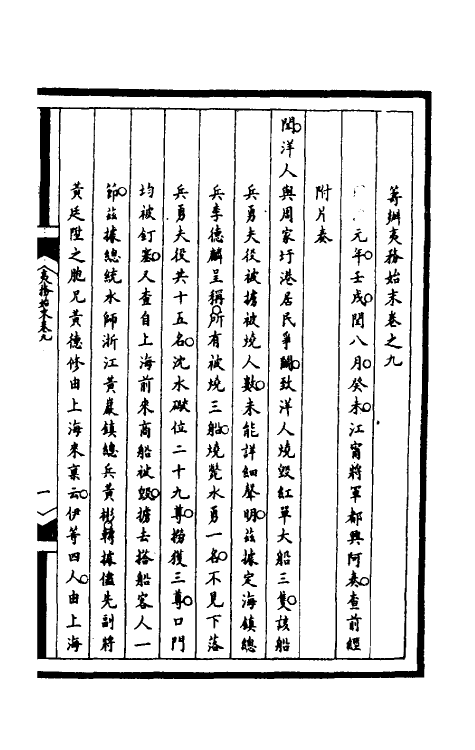 籌辦夷務始末卷之九
元年。壬戌。閏八月。癸未。江甯將軍都興阿奏。查前經
附片奏
聞。洋人與周家圩港居民爭鬭。致洋人燒毀紅單大船三隻。該船
兵勇夫役被擄被燒人數。未能詳細聲明。茲據定海鎮總
兵李德麟呈稱。所有被燒三船。燒斃水勇一名。不見下落
兵勇夫役共十五名。沈水礮位二十九尊。撈獲三尊。口門
均被釘塞。又查自上海前來商船被毀。擄去搭船客人一
節。茲據總統水師浙江黃巖鎮總兵黃彬。轉據儘先副將
黃廷陞之胞兄黃德修由上海來稟云。伊等四人。由上海
夷務始末卷九
一